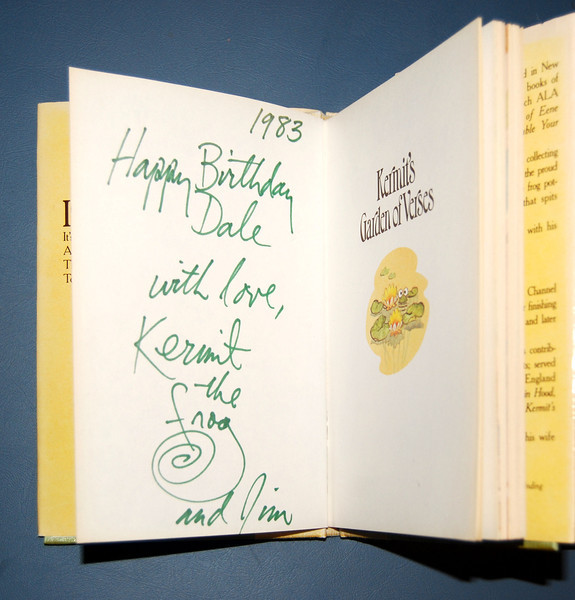 1983
Happy Birthday
Dale
with love,
Kermit
the
frog
and Jim
Kermit's
Garden of Verses
I
It's
A
T
To
d in New
books of
ch ALA
of Eene
ble Your
collecting
the proud
frog pot-
that spits
with his
Channel
finishing
and later
contrib-
served
England
in Hood,
Kermit's
his wife
nding